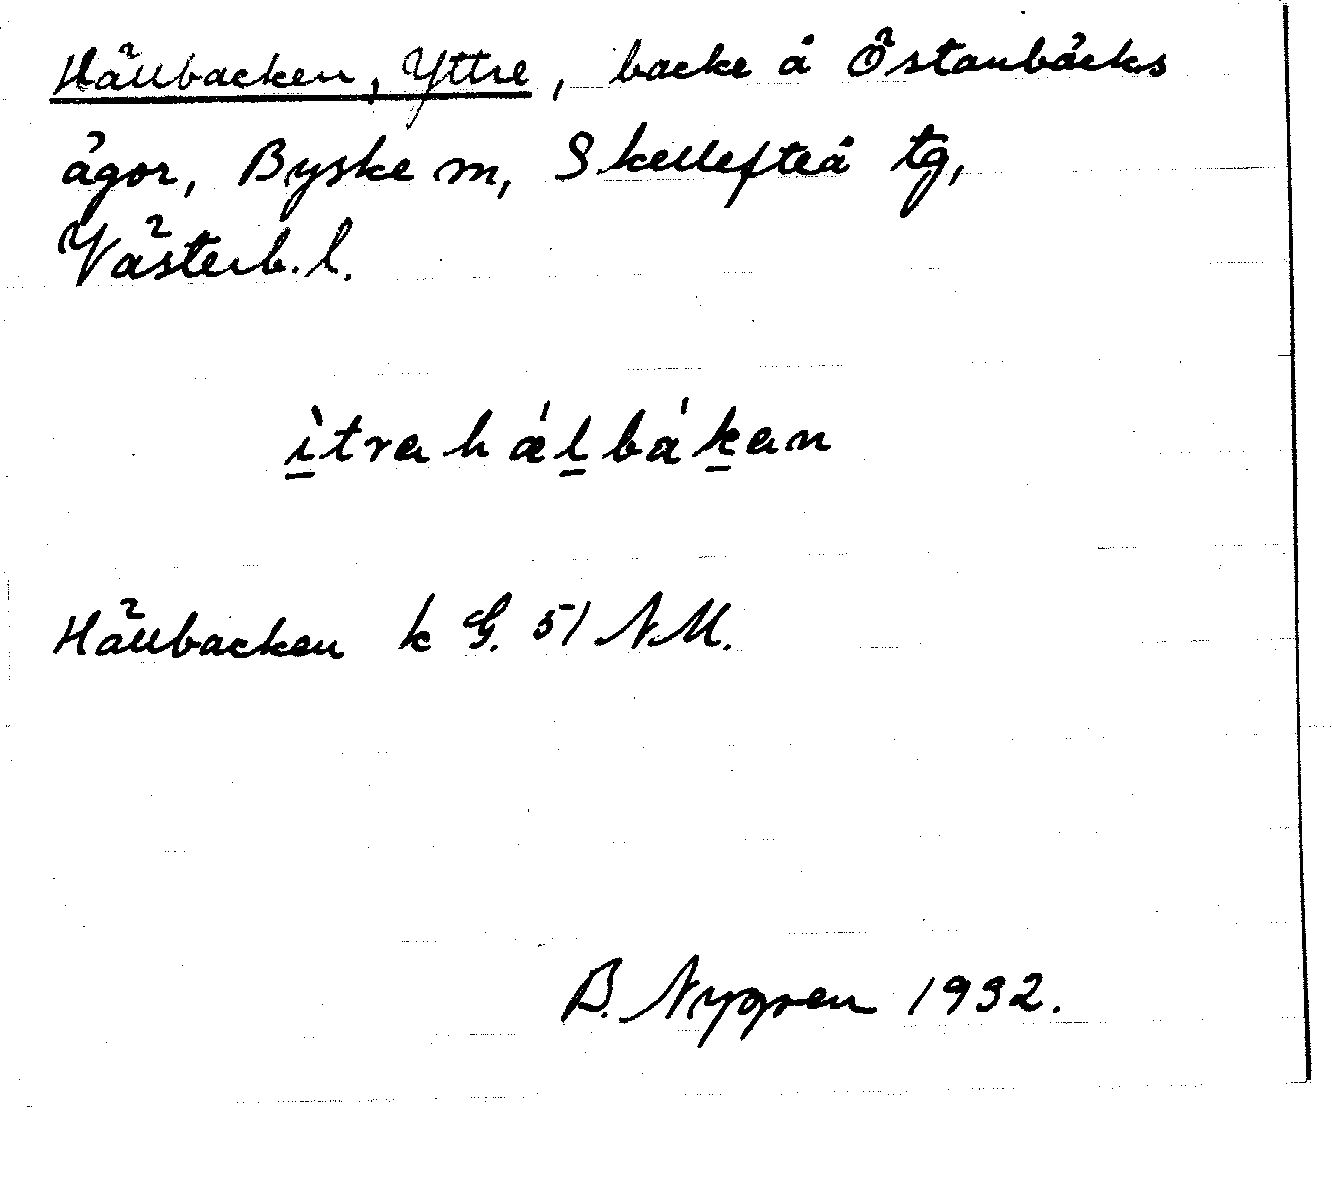 Hällbacken, Yttre, backe å Östanbäcks
ägor, Byske sn, Skellefteå tg,
Västerb. l.
ìtra hálbákan
Hällbacken k G. 51 NM.
B. Nygren 1932.